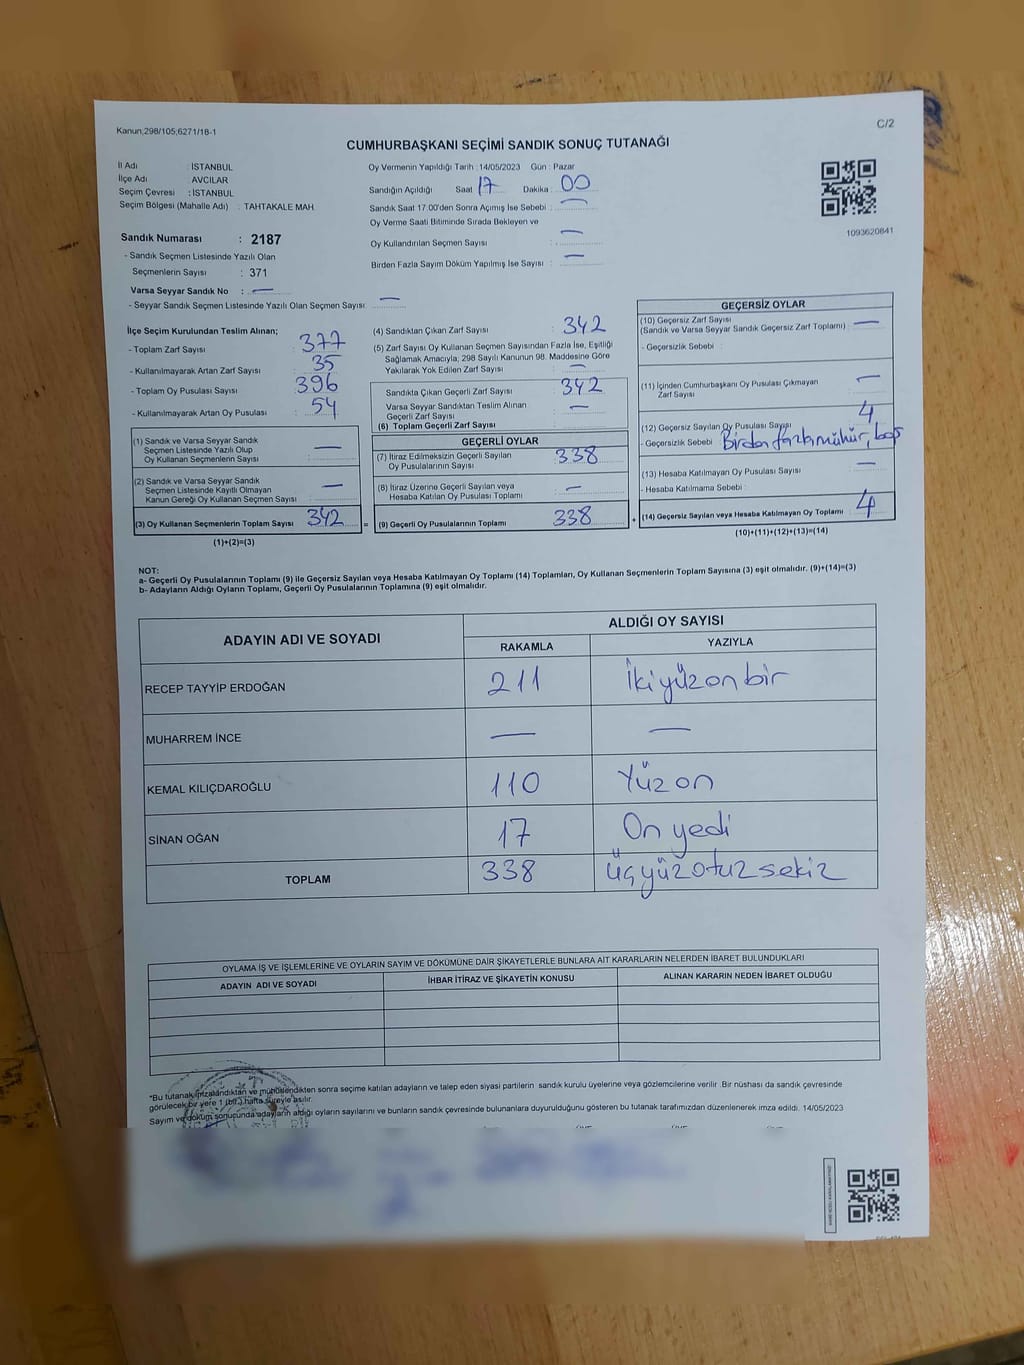 Kanun;298/105;6271/18-1
C/2
CUMHURBAŞKANI SEÇİMİ SANDIK SONUÇ TUTANAĞI
İl Adı : İSTANBUL
İlçe Adı : AVCILAR
Seçim Çevresi : İSTANBUL
Seçim Bölgesi (Mahalle Adı) : TAHTAKALE MAH.
Sandık Numarası : 2187
- Sandık Seçmen Listesinde Yazılı Olan
Seçmenlerin Sayısı : 371
Varsa Seyyar Sandık No : —
- Seyyar Sandık Seçmen Listesinde Yazılı Olan Seçmen Sayısı: —
Oy Vermenin Yapıldığı Tarih : 14/05/2023 Gün : Pazar
Sandığın Açıldığı Saat 17 Dakika : 00
Sandık Saat 17.00'den Sonra Açımış İse Sebebi : —
Oy Verme Saati Bitiminde Sırada Bekleyen ve
Oy Kullandırılan Seçmen Sayısı : —
Birden Fazla Sayım Döküm Yapılmış İse Sayısı : —
1093620841
İlçe Seçim Kurulundan Teslim Alınan;
- Toplam Zarf Sayısı : 377
- Kullanılmayarak Artan Zarf Sayısı : 35
- Toplam Oy Pusulası Sayısı : 396
- Kullanılmayarak Artan Oy Pusulası : 54
(1) Sandık ve Varsa Seyyar Sandık
Seçmen Listesinde Yazılı Olup
Oy Kullanan Seçmenlerin Sayısı —
(2) Sandık ve Varsa Seyyar Sandık
Seçmen Listesinde Kayıtlı Olmayan
Kanun Gereği Oy Kullanan Seçmen Sayısı —
(3) Oy Kullanan Seçmenlerin Toplam Sayısı 342 =
(1)+(2)=(3)
(4) Sandıktan Çıkan Zarf Sayısı : 342
(5) Zarf Sayısı Oy Kullanan Seçmen Sayısından Fazla İse, Eşitliği
Sağlamak Amacıyla; 298 Sayılı Kanunun 98. Maddesine Göre
Yakılarak Yok Edilen Zarf Sayısı : —
Sandıkta Çıkan Geçerli Zarf Sayısı : 342
Varsa Seyyar Sandıktan Teslim Alınan
Geçerli Zarf Sayısı : —
(6) Toplam Geçerli Zarf Sayısı :
GEÇERLİ OYLAR
(7) İtiraz Edilmeksizin Geçerli Sayılan
Oy Pusulalarının Sayısı : 338
(8) İtiraz Üzerine Geçerli Sayılan veya
Hesaba Katılan Oy Pusulası Toplamı : —
(9) Geçerli Oy Pusulalarının Toplamı : 338 +
GEÇERSİZ OYLAR
(10) Geçersiz Zarf Sayısı
(Sandık ve Varsa Seyyar Sandık Geçersiz Zarf Toplamı) : —
- Geçersizlik Sebebi :
(11) İçinden Cumhurbaşkanı Oy Pusulası Çıkmayan
Zarf Sayısı : —
(12) Geçersiz Sayılan Oy Pusulası Sayısı : 4
- Geçersizlik Sebebi : Birden fazla mühür, boş
(13) Hesaba Katılmayan Oy Pusulası Sayısı : —
- Hesaba Katılmama Sebebi :
(14) Geçersiz Sayılan veya Hesaba Katılmayan Oy Toplamı : 4
(10)+(11)+(12)+(13)=(14)
NOT:
a- Geçerli Oy Pusulalarının Toplamı (9) ile Geçersiz Sayılan veya Hesaba Katılmayan Oy Toplamı (14) Toplamları, Oy Kullanan Seçmenlerin Toplam Sayısına (3) eşit olmalıdır. (9)+(14)=(3)
b- Adayların Aldığı Oyların Toplamı, Geçerli Oy Pusulalarının Toplamına (9) eşit olmalıdır.
ADAYIN ADI VE SOYADI ALDIĞI OY SAYISI
RAKAMLA YAZIYLA
RECEP TAYYİP ERDOĞAN 211 İkiyüzonbir
MUHARREM İNCE — —
KEMAL KILIÇDAROĞLU 110 Yüzon
SİNAN OĞAN 17 On yedi
TOPLAM 338 üçyüzotuzsekiz
OYLAMA İŞ VE İŞLEMLERİNE VE OYLARIN SAYIM VE DÖKÜMÜNE DAİR ŞİKAYETLERLE BUNLARA AİT KARARLARIN NELERDEN İBARET BULUNDUKLARI
ADAYIN ADI VE SOYADI İHBAR İTİRAZ VE ŞİKAYETİN KONUSU ALINAN KARARIN NEDEN İBARET OLDUĞU
*Bu tutanak imzalandıktan ve mühürlendikten sonra seçime katılan adayların ve talep eden siyasi partilerin sandık kurulu üyelerine veya gözlemcilerine verilir .Bir nüshası da sandık çevresinde
görülecek bir yere 1 (bir) hafta süreyle asılır.
Sayım ve döküm sonucunda adayların aldığı oyların sayılarını ve bunların sandık çevresinde bulunanlara duyurulduğunu gösteren bu tutanak tarafımızdan düzenlenerek imza edildi. 14/05/2023